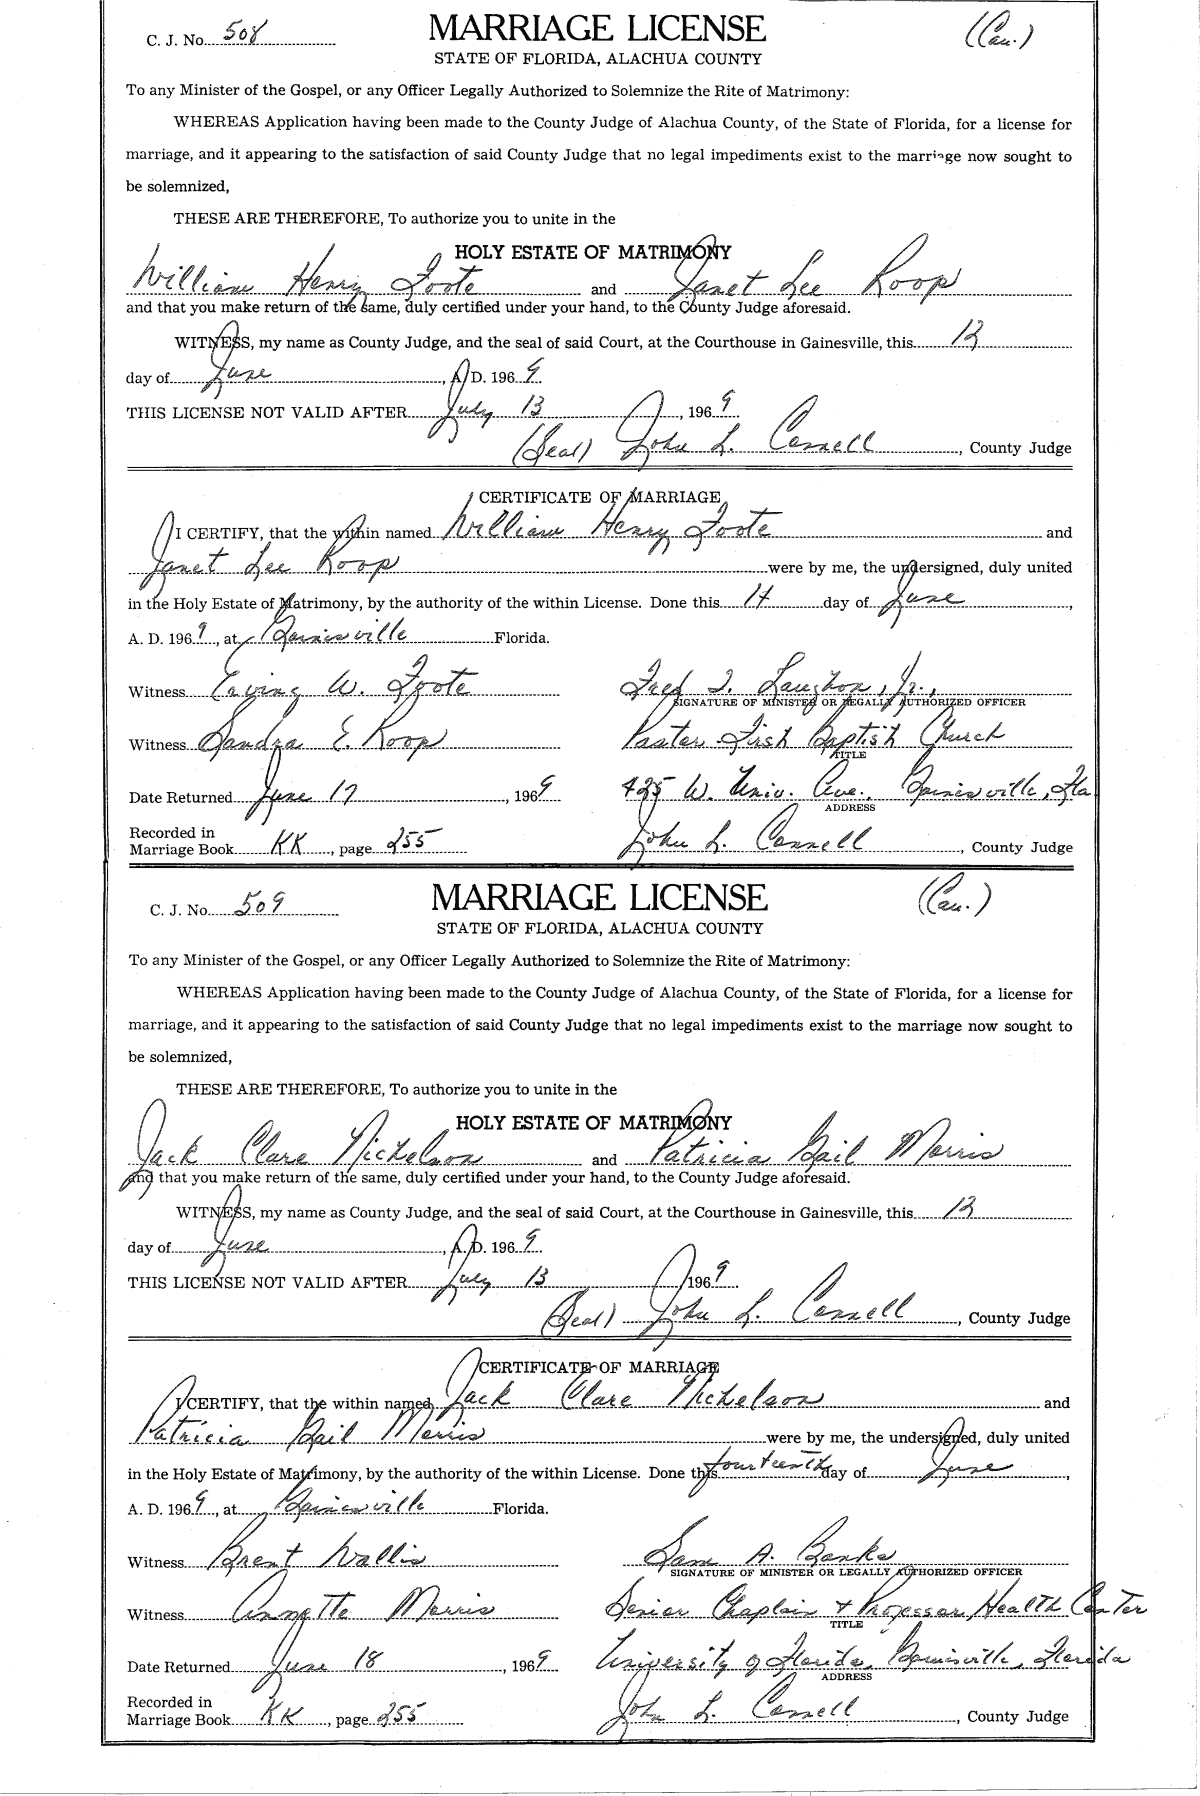 C. J. No. 508 MARRIAGE LICENSE (Cau.)
STATE OF FLORIDA, ALACHUA COUNTY
To any Minister of the Gospel, or any Officer Legally Authorized to Solemnize the Rite of Matrimony:
WHEREAS Application having been made to the County Judge of Alachua County, of the State of Florida, for a license for
marriage, and it appearing to the satisfaction of said County Judge that no legal impediments exist to the marriage now sought to
be solemnized,
THESE ARE THEREFORE, To authorize you to unite in the
HOLY ESTATE OF MATRIMONY
William Henry Foote and Janet Lee Roop
and that you make return of the same, duly certified under your hand, to the County Judge aforesaid.
WITNESS, my name as County Judge, and the seal of said Court, at the Courthouse in Gainesville, this 13
day of June, A. D. 1969.
THIS LICENSE NOT VALID AFTER July 13, 1969.
(Seal) John L. Connell, County Judge
CERTIFICATE OF MARRIAGE
I CERTIFY, that the within named William Henry Foote and
Janet Lee Roop were by me, the undersigned, duly united
in the Holy Estate of Matrimony, by the authority of the within License. Done this 14 day of June,
A. D. 1969, at Gainesville Florida.
Witness Erving W. Foote Fred T. Laughon, Jr.,
SIGNATURE OF MINISTER OR LEGALLY AUTHORIZED OFFICER
Witness Sandra E. Roop Pastor First Baptist Church
TITLE
Date Returned June 17, 1969 425 W. Univ. Ave., Gainesville, Fla
ADDRESS
Recorded in
Marriage Book KK, page 255 John L. Connell, County Judge
C. J. No. 509 MARRIAGE LICENSE (Cau.)
STATE OF FLORIDA, ALACHUA COUNTY
To any Minister of the Gospel, or any Officer Legally Authorized to Solemnize the Rite of Matrimony:
WHEREAS Application having been made to the County Judge of Alachua County, of the State of Florida, for a license for
marriage, and it appearing to the satisfaction of said County Judge that no legal impediments exist to the marriage now sought to
be solemnized,
THESE ARE THEREFORE, To authorize you to unite in the
HOLY ESTATE OF MATRIMONY
Jack Clare Nichelson and Patricia Gail Morris
and that you make return of the same, duly certified under your hand, to the County Judge aforesaid.
WITNESS, my name as County Judge, and the seal of said Court, at the Courthouse in Gainesville, this 13
day of June, A. D. 1969.
THIS LICENSE NOT VALID AFTER July 13 1969.
(Seal) John L. Connell, County Judge
CERTIFICATE OF MARRIAGE
I CERTIFY, that the within named Jack Clare Nichelson and
Patricia Gail Morris were by me, the undersigned, duly united
in the Holy Estate of Matrimony, by the authority of the within License. Done this fourteenth day of June,
A. D. 1969, at Gainesville Florida.
Witness Brent Wallis Sam A. Banks
SIGNATURE OF MINISTER OR LEGALLY AUTHORIZED OFFICER
Witness Annette Morris Senior Chaplain + Professor, Health Center
TITLE
Date Returned June 18, 1969 University of Florida, Gainesville, Florida
ADDRESS
Recorded in
Marriage Book KK, page 255 John L. Connell, County Judge